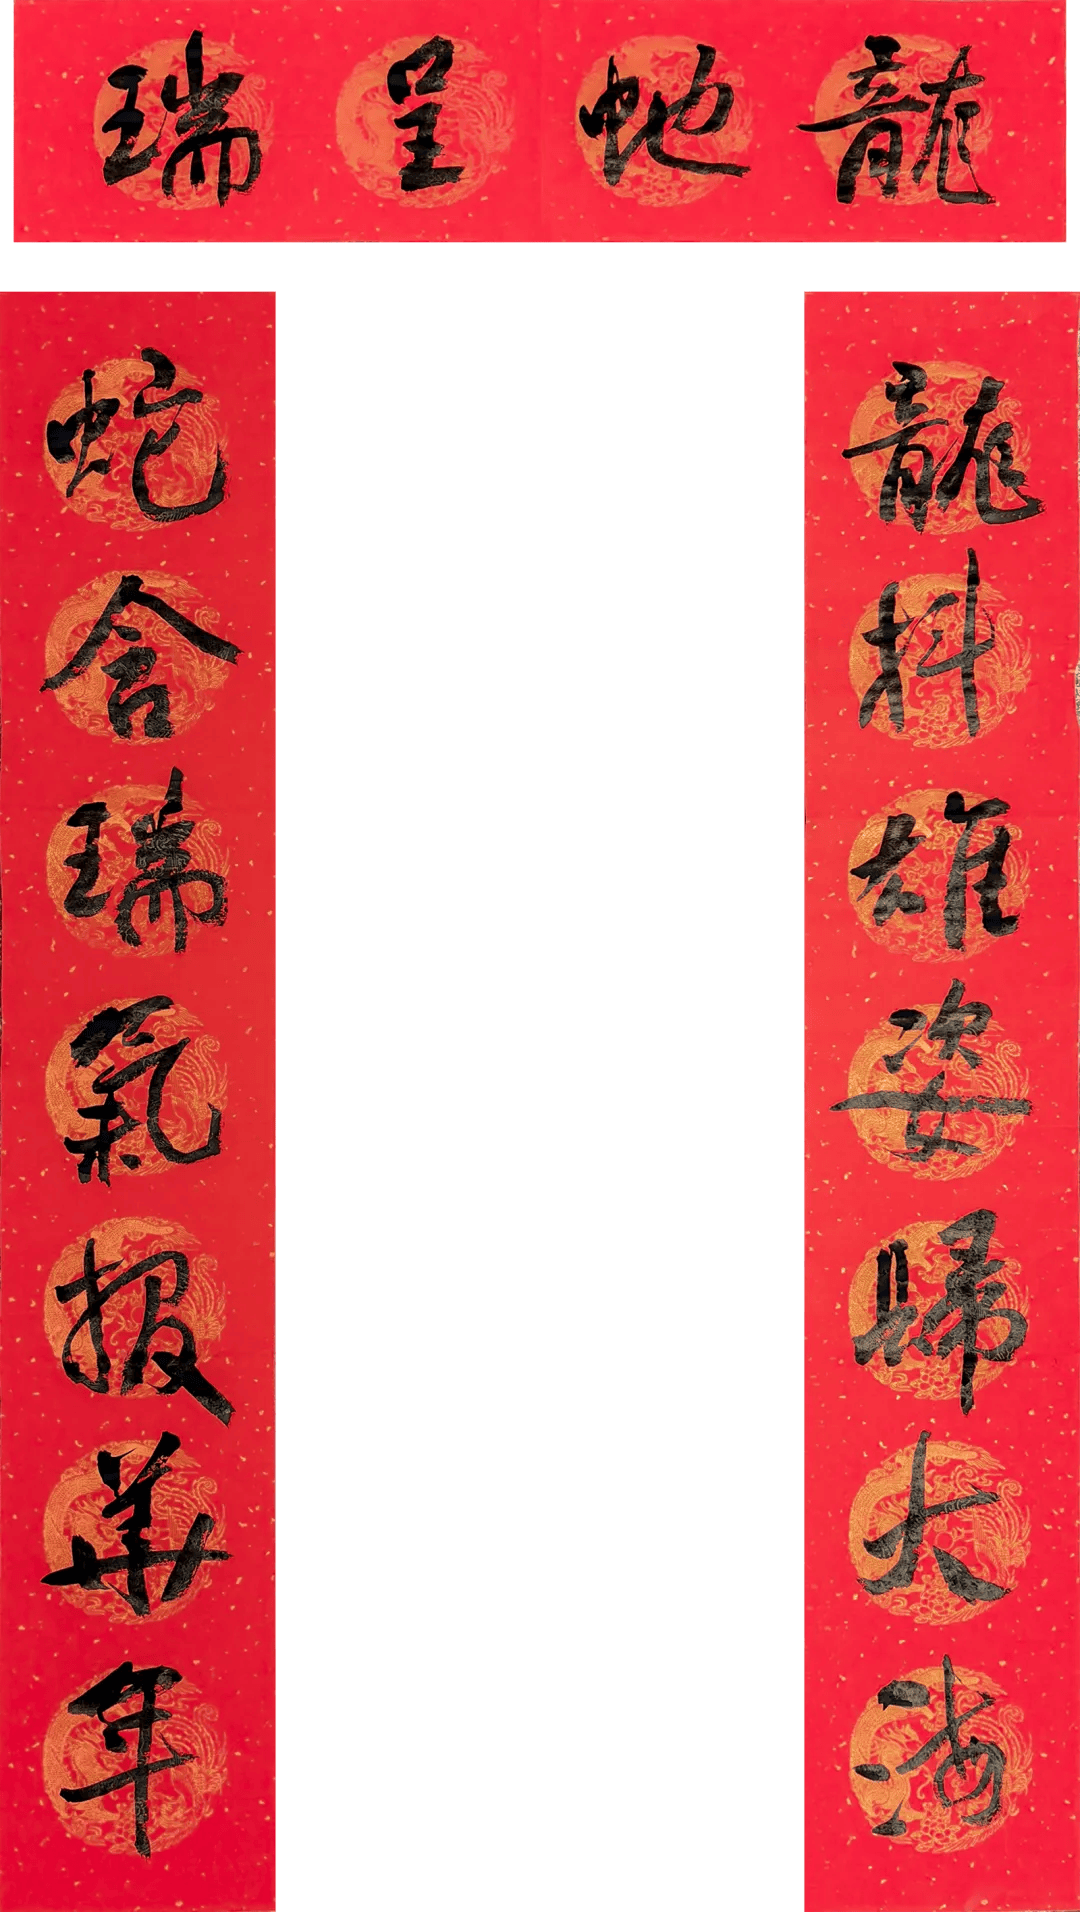 龍虵呈瑞
龍抖雄姿歸大海
蛇含瑞氣報華年